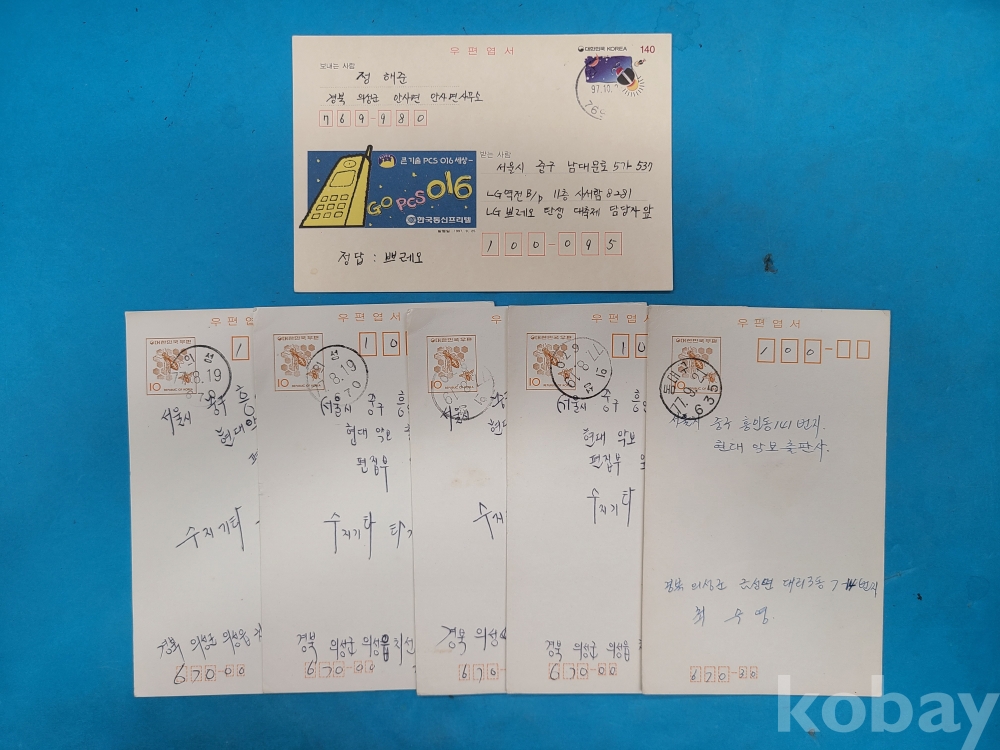 우편엽서
대한민국 KOREA 140
보내는 사람
정 해준
경북 의성군 안사면 안사면사무소
769-980
97.10.
769
큰 기술 PCS 016 세상~
GO PCS 016
한국통신프리텔
받는 사람
서울시 중구 남대문로 5가 537
LG역전 B/D 11층 사서함 8281
LG 쁘레오 탄생 대축제 담당자 앞
100-095
정답 : 쁘레오
우편엽
대한민국우편
10
의성
8.19
670
1
서울시 중구 흥
현대악
수지기타
경북 의성군 의성읍
670-00
우편엽서
대한민국우편
10
의성
8.19
670
10
서울시 중구 흥
현대 악보
편집부
수지기타 타
경북 의성군 의성읍
670-00
우편엽
대한민국우편
10
서울시
수지
경북 의성
670-
우편엽서
대한민국우편
10
의성
77.8.19
670
10
서울시 중구 흥
현대 악보
편집부
수지기타
경북 의성군 의성읍
670-00
우편엽서
대한민국우편
10
77.9.
635
100-
서울시 중구 흥인동 141 번지.
현대 악보출판사.
경북 의성군
최 수영.
670-00
kobay